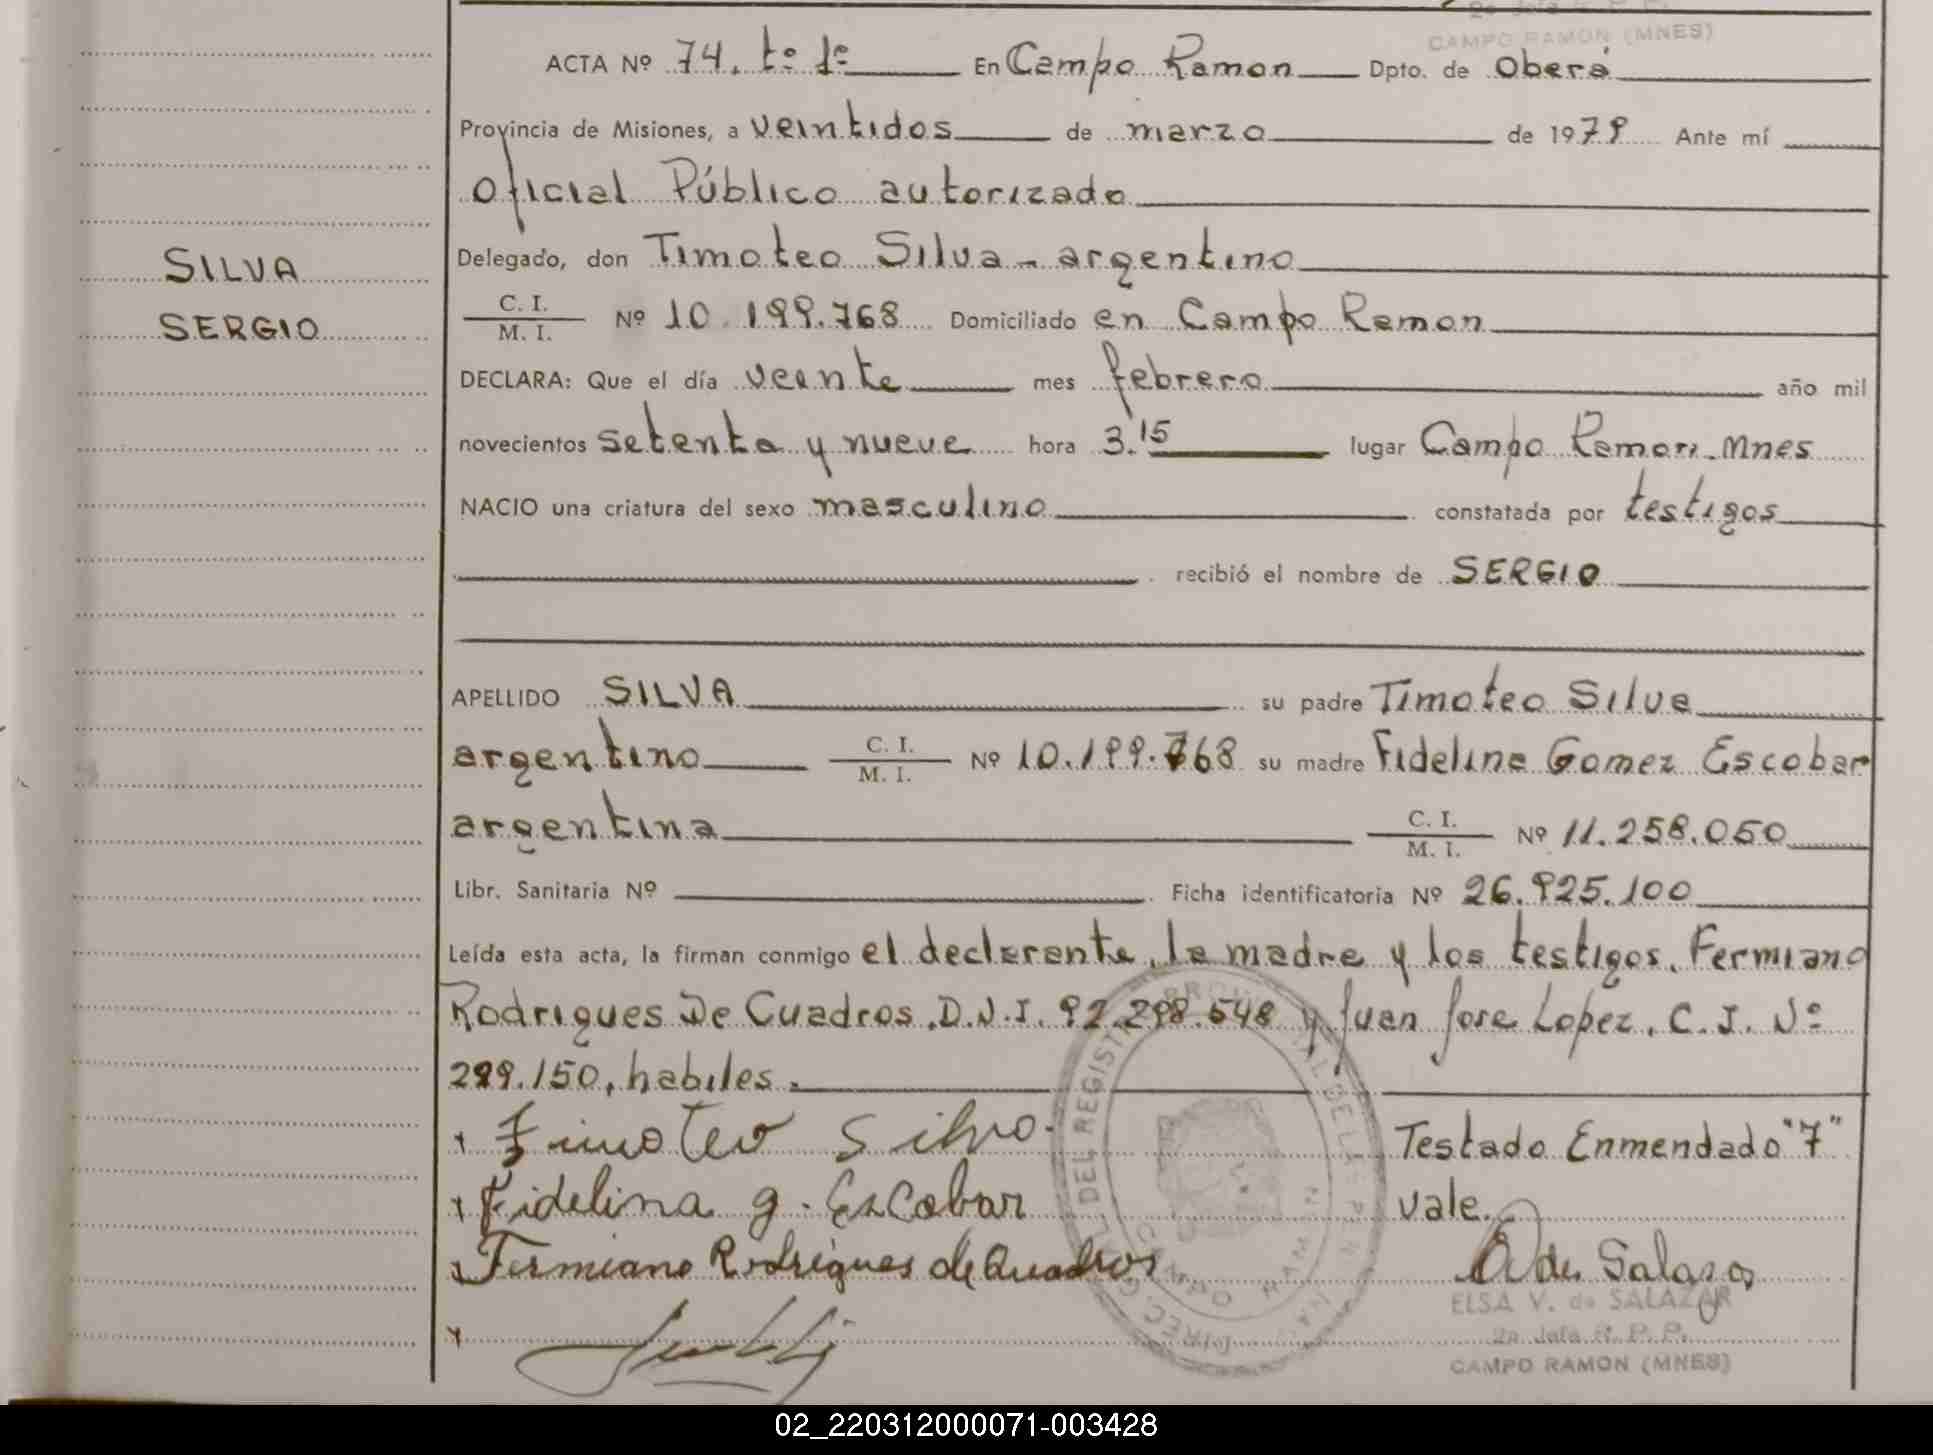 CAMPO RAMON (MNES)
ACTA Nº 74. tº 1º En Campo Ramon Dpto. de Oberá
Provincia de Misiones, a veintidos de marzo de 1979 Ante mí
oficial Público autorizado
SILVA
SERGIO
Delegado, don Timoteo Silva - argentino
C. I.
M. I. Nº 10.199.768 Domiciliado en Campo Ramon
DECLARA: Que el día veinte mes febrero año mil
novecientos setenta y nueve hora 3.15 lugar Campo Ramon. Mnes
NACIO una criatura del sexo masculino constatada por testigos
recibió el nombre de SERGIO
APELLIDO SILVA su padre Timoteo Silva
argentino C. I.
M. I. Nº 10.199.768 su madre Fidelina Gomez Escobar
argentina C. I.
M. I. Nº 11.258.050
Libr. Sanitaria Nº Ficha identificatoria Nº 26.925.100
Leída esta acta, la firman conmigo el declarante, la madre y los testigos. Fermiano
Rodrigues De Cuadros. D.N.I. 92.298.548 y Juan Jose Lopez. C.I. Nº
299.150, habiles.
Timoteo Silva. Testado Enmendado "7"
Fidelina g. Escobar vale.
Fermiano Rodrigues de Quadros
ELSA V. de SALAZAR
2a Jefa R. P. P.
CAMPO RAMON (MNES)
02_220312000071-003428